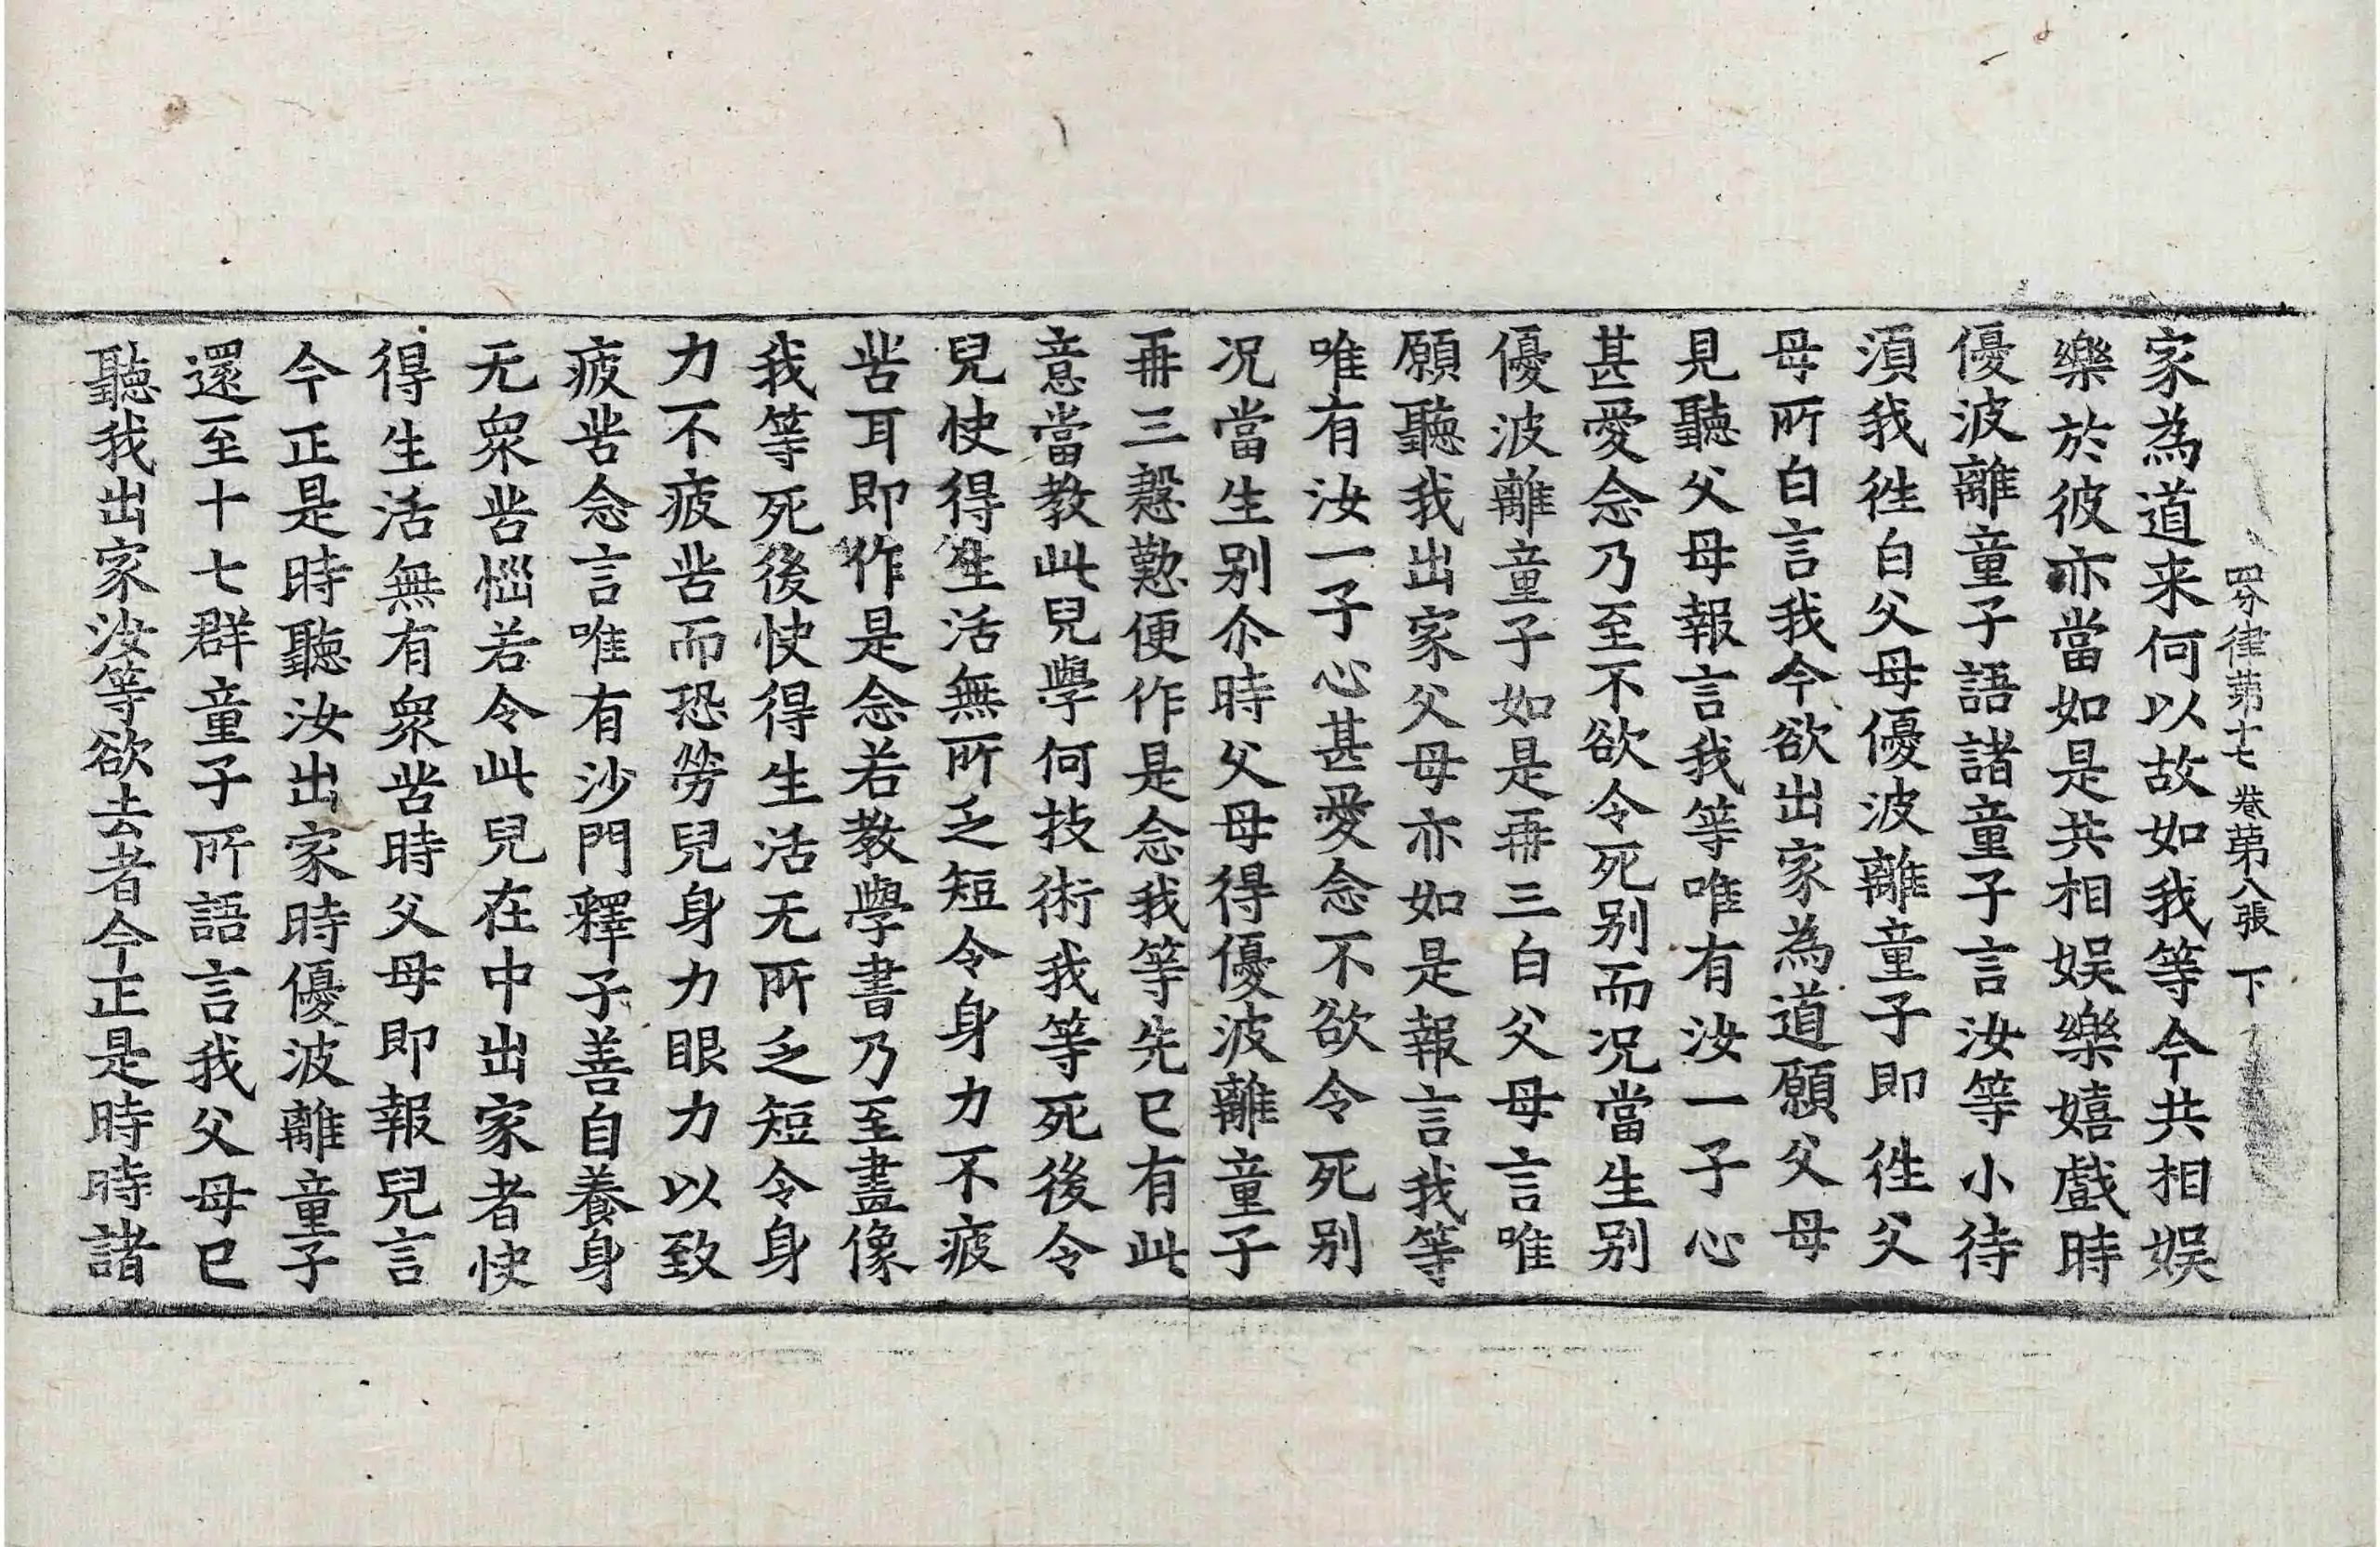 四分律第十七卷第八張 下
家為道来何以故如我等今共相娛
樂於彼亦當如是共相娛樂嬉戲時
優波離童子語諸童子言汝等小待
湏我徃白父母優波離童子即徃父
母所白言我今欲出家為道願父母
見聽父母報言我等唯有汝一子心
甚愛念乃至不欲令死别而况當生别
優波離童子如是再三白父母言唯
願聽我出家父母亦如是報言我等
唯有汝一子心甚愛念不欲令死别
况當生别尒時父母得優波離童子
再三慇懃便作是念我等先已有此
意當教此兒學何技術我等死後令
兒快得生活無所乏短令身力不疲
苦耳即作是念若教學書乃至畫像
我等死後快得生活无所乏短令身
力不疲苦而恐勞兒身力眼力以致
疲苦念言唯有沙門釋子善自養身
无衆苦惱若令此兒在中出家者快
得生活無有衆苦時父母即報兒言
今正是時聽汝出家時優波離童子
還至十七群童子所語言我父母已
聽我出家汝等欲去者今正是時時諸